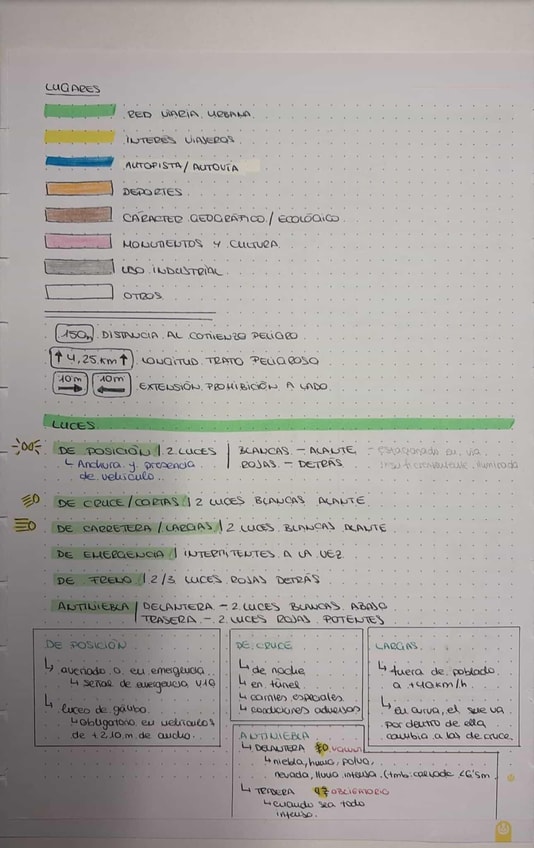 LUGARES
RED VIARIA URBANA
INTERÉS VIAJEROS
AUTOPISTA/AUTOVÍA
DEPORTES
CARÁCTER GEOGRÁFICO/ECOLÓGICO
MONUMENTOS Y CULTURA
USO INDUSTRIAL
OTROS
150m DISTANCIA AL COMIENZO PELIGRO
↑ 4,25 km ↑ LONGITUD TRATO PELIGROSO
10m → 10m ← EXTENSIÓN PROHIBICIÓN A LADO
LUCES
DE POSICIÓN | 2 LUCES | BLANCAS - ALANTE - estacionado en vía
↳ Anchura y presencia de vehículo. ROJAS - DETRÁS insuficientemente iluminada
DE CRUCE/CORTAS | 2 LUCES BLANCAS ALANTE
DE CARRETERA/LARGAS | 2 LUCES BLANCAS ALANTE
DE EMERGENCIA | INTERMITENTES A LA VEZ
DE FRENO | 2/3 LUCES ROJAS DETRÁS
ANTINIEBLA | DELANTERA - 2 LUCES BLANCAS ABAJO
TRASERA - 2 LUCES ROJAS POTENTES
DE POSICIÓN
↳ averiado o en emergencia
↳ señal de emergencia V16
↳ luces de gálibo
↳ obligatorio en vehículos
de +2,10 m de ancho.
DE CRUCE
↳ de noche
↳ en túnel
↳ carriles especiales
↳ condiciones adversas
LARGAS
↳ fuera de poblado
a +40km/h
↳ en curva, el que va
por dentro de ella
cambia a las de cruce.
ANTINIEBLA
↳ DELANTERA
↳ niebla, humo, polvo,
nevada, lluvia intensa. (+mb: calzada <6'5m
↳ TRASERA OBLIGATORIO
↳ cuando sea todo
intenso.